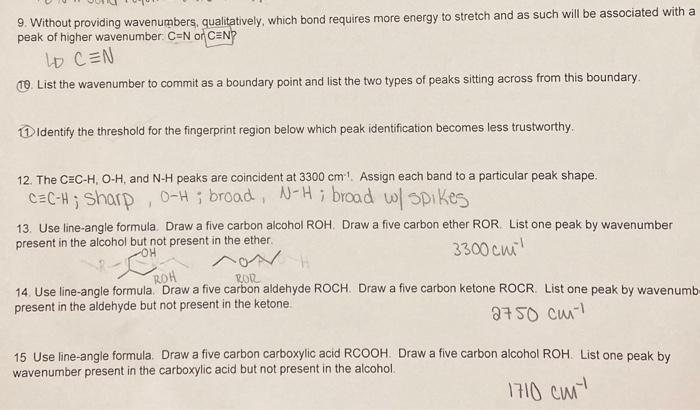 9. Without providing wavenumbers, qualitatively, which bond requires more energy to stretch and as such will be associated with a
peak of higher wavenumber: C=N or C≡N?
↳ C≡N
10. List the wavenumber to commit as a boundary point and list the two types of peaks sitting across from this boundary.
11 Identify the threshold for the fingerprint region below which peak identification becomes less trustworthy.
12. The C≡C-H, O-H, and N-H peaks are coincident at 3300 cm⁻¹. Assign each band to a particular peak shape.
C≡C-H; sharp, O-H; broad, N-H; broad w/ spikes
13. Use line-angle formula. Draw a five carbon alcohol ROH. Draw a five carbon ether ROR. List one peak by wavenumber
present in the alcohol but not present in the ether.
3300 cm⁻¹
OH
O
ROH ROR
14. Use line-angle formula. Draw a five carbon aldehyde ROCH. Draw a five carbon ketone ROCR. List one peak by wavenumb
present in the aldehyde but not present in the ketone.
2750 cm⁻¹
15 Use line-angle formula. Draw a five carbon carboxylic acid RCOOH. Draw a five carbon alcohol ROH. List one peak by
wavenumber present in the carboxylic acid but not present in the alcohol.
1710 cm⁻¹